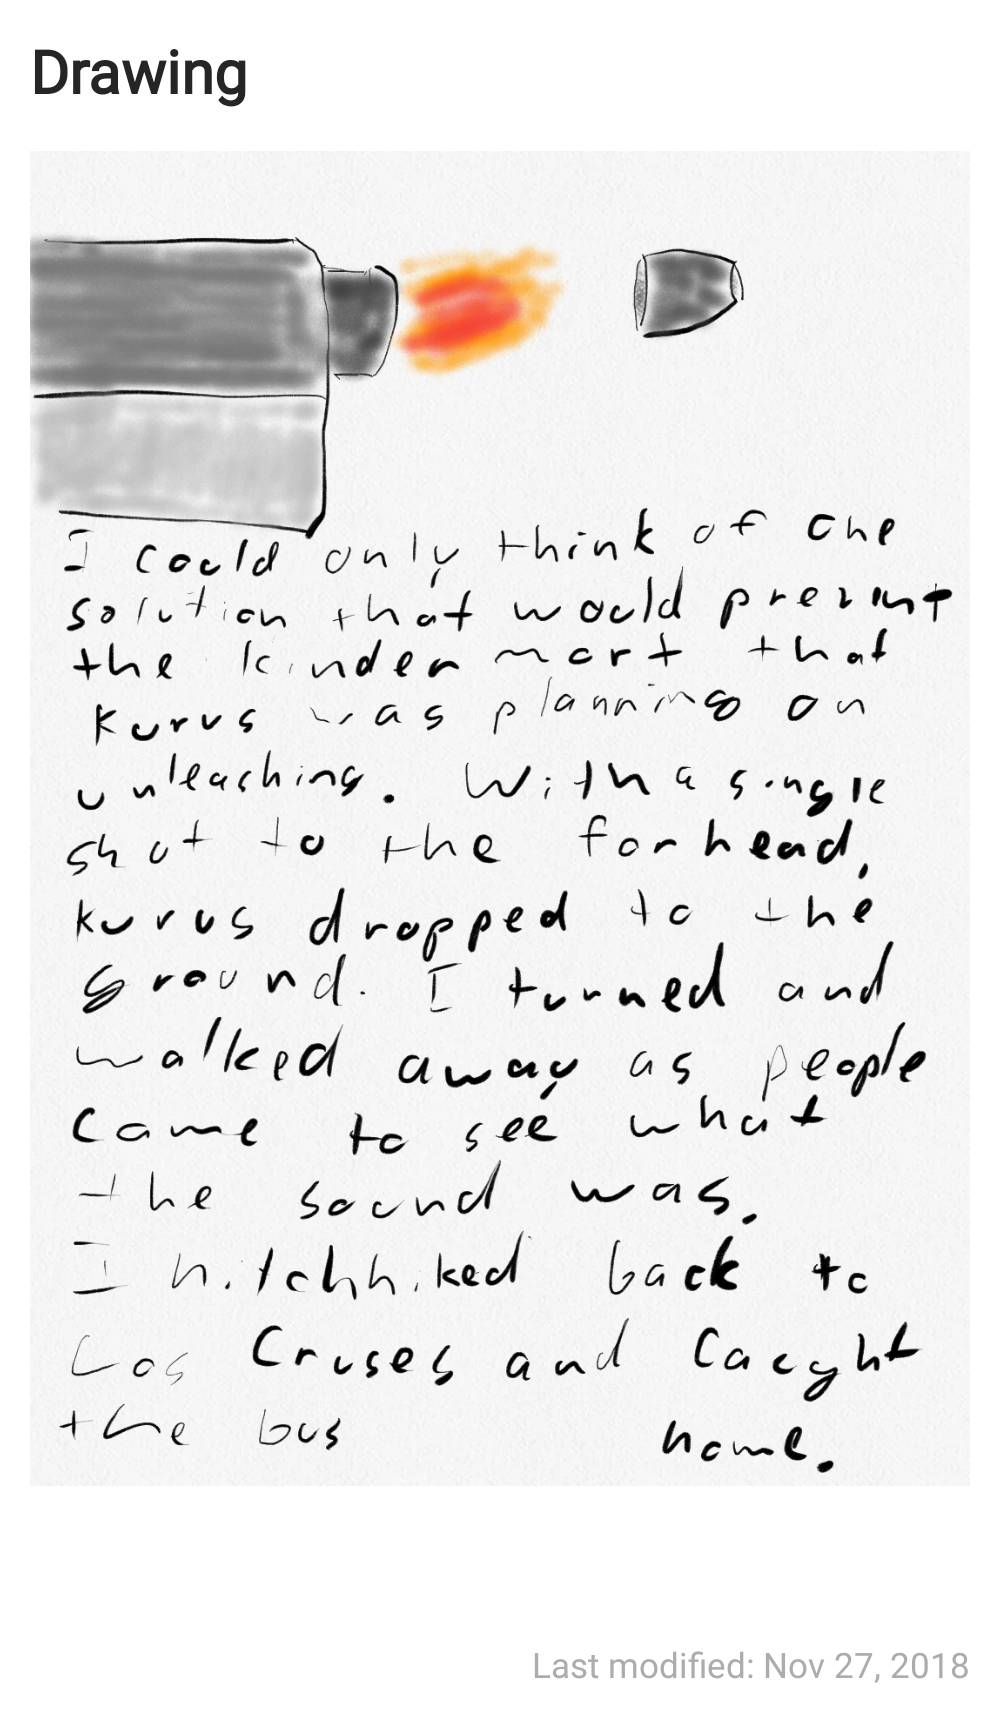 Drawing
I could only think of one
solution that would prevent
the kinder mort that
Kurus was planning on
unleaching. With a single
shot to the forhead,
kurus dropped to the
ground. I turned and
walked away as people
came to see what
the sound was.
I hitchhiked back to
Los Cruses and caught
the bus home.
Last modified: Nov 27, 2018